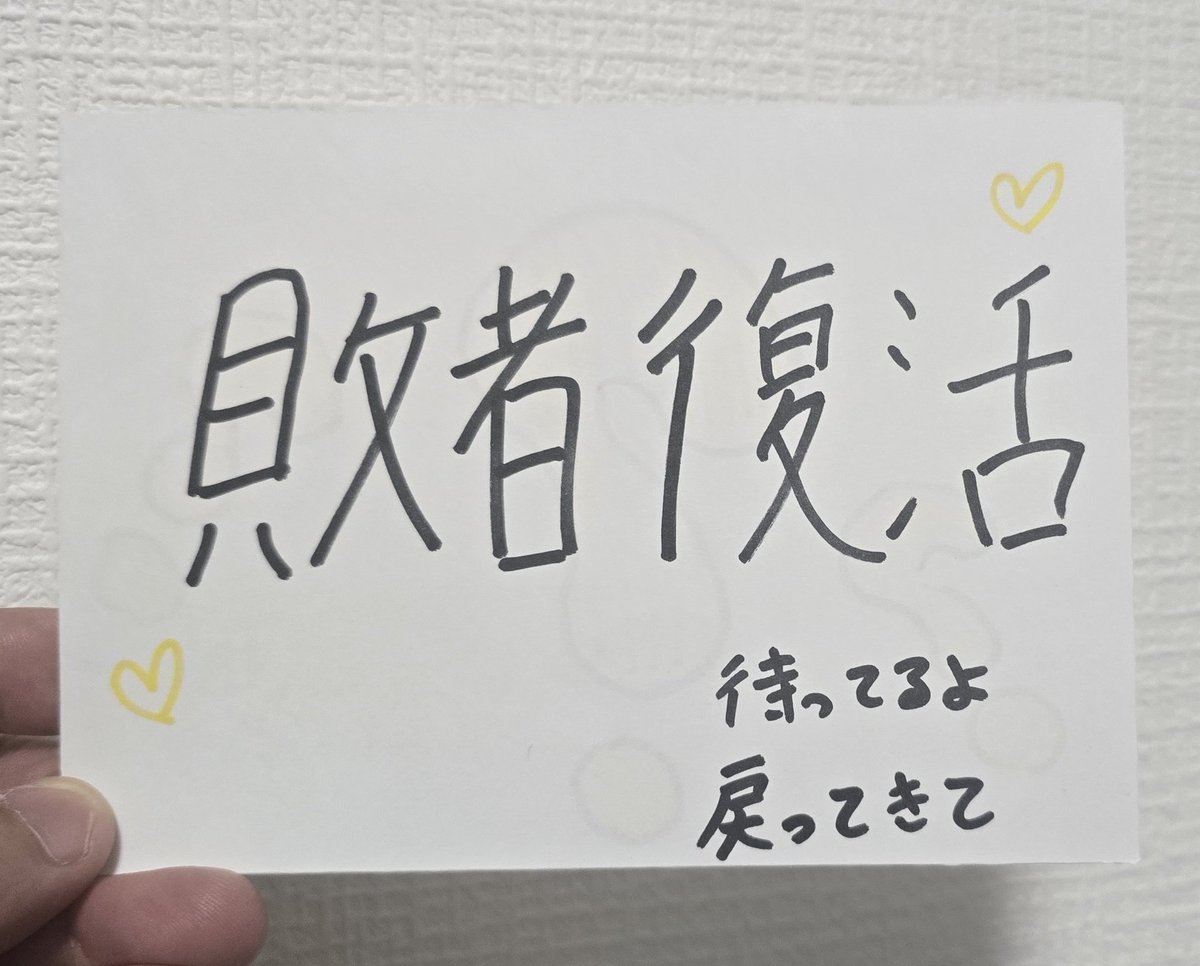 敗者復活
待ってるよ
戻ってきて